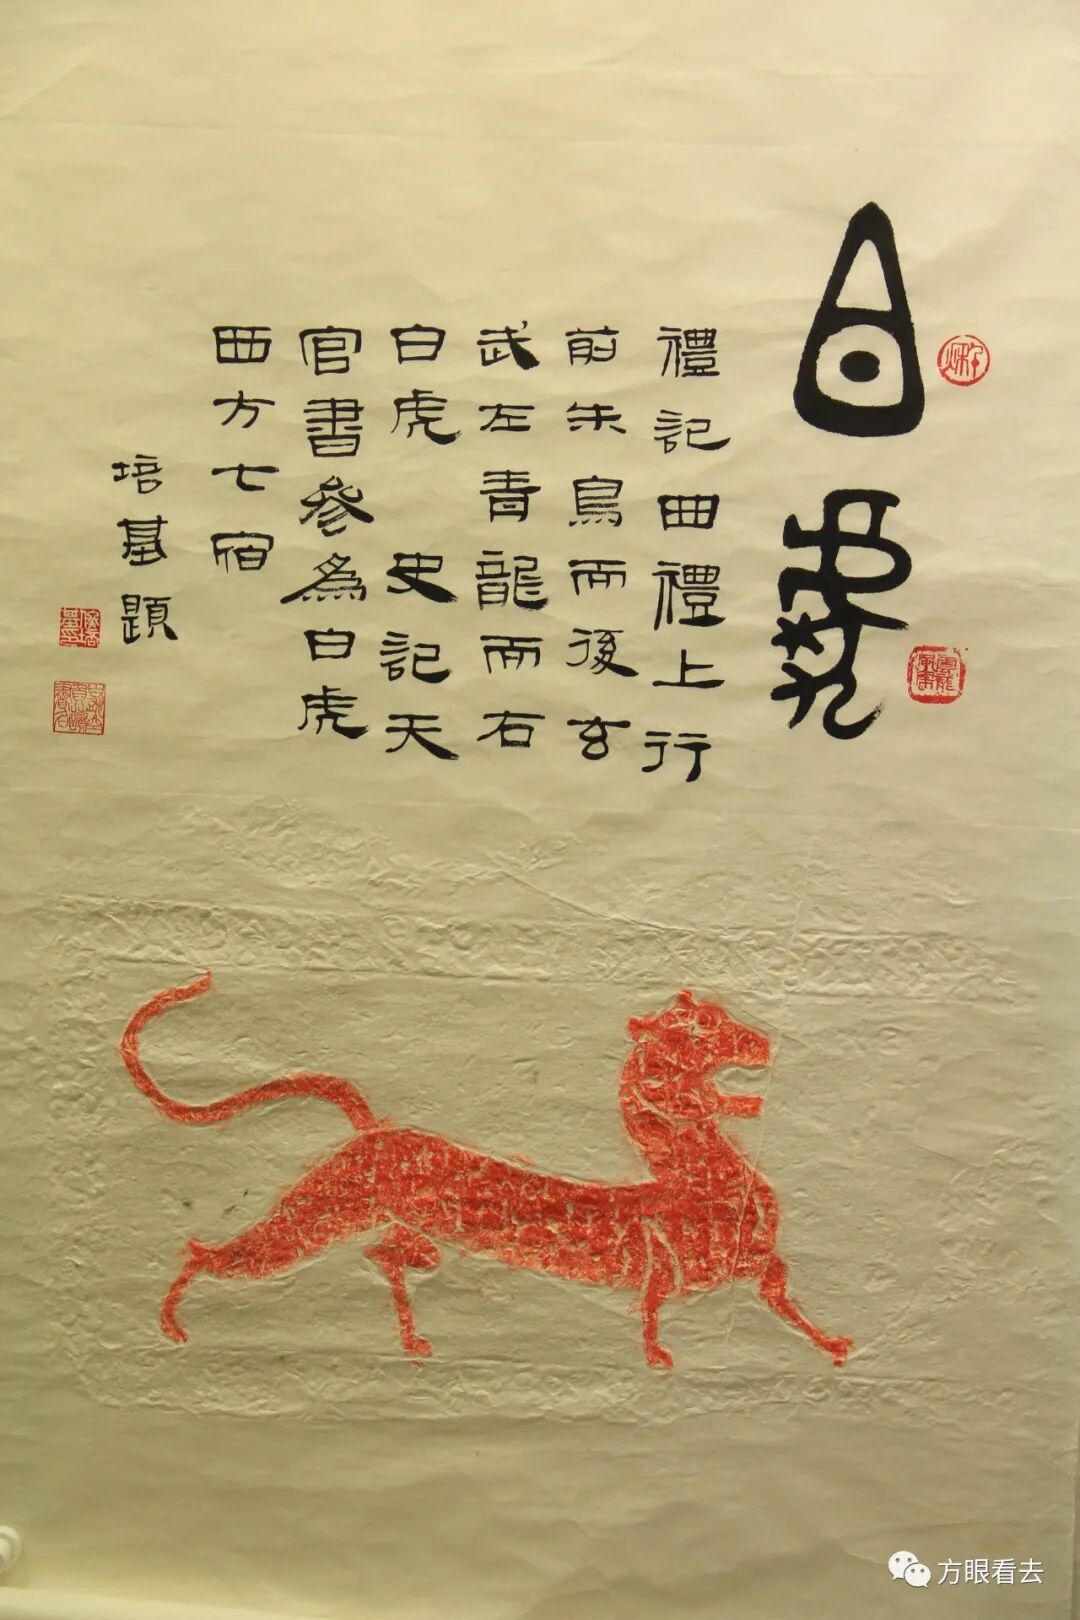 白虎
禮記曲禮上行
前朱鳥而後玄
武左青龍而右
白虎 史記天
官書參為白虎
西方七宿
培基題
方眼看去